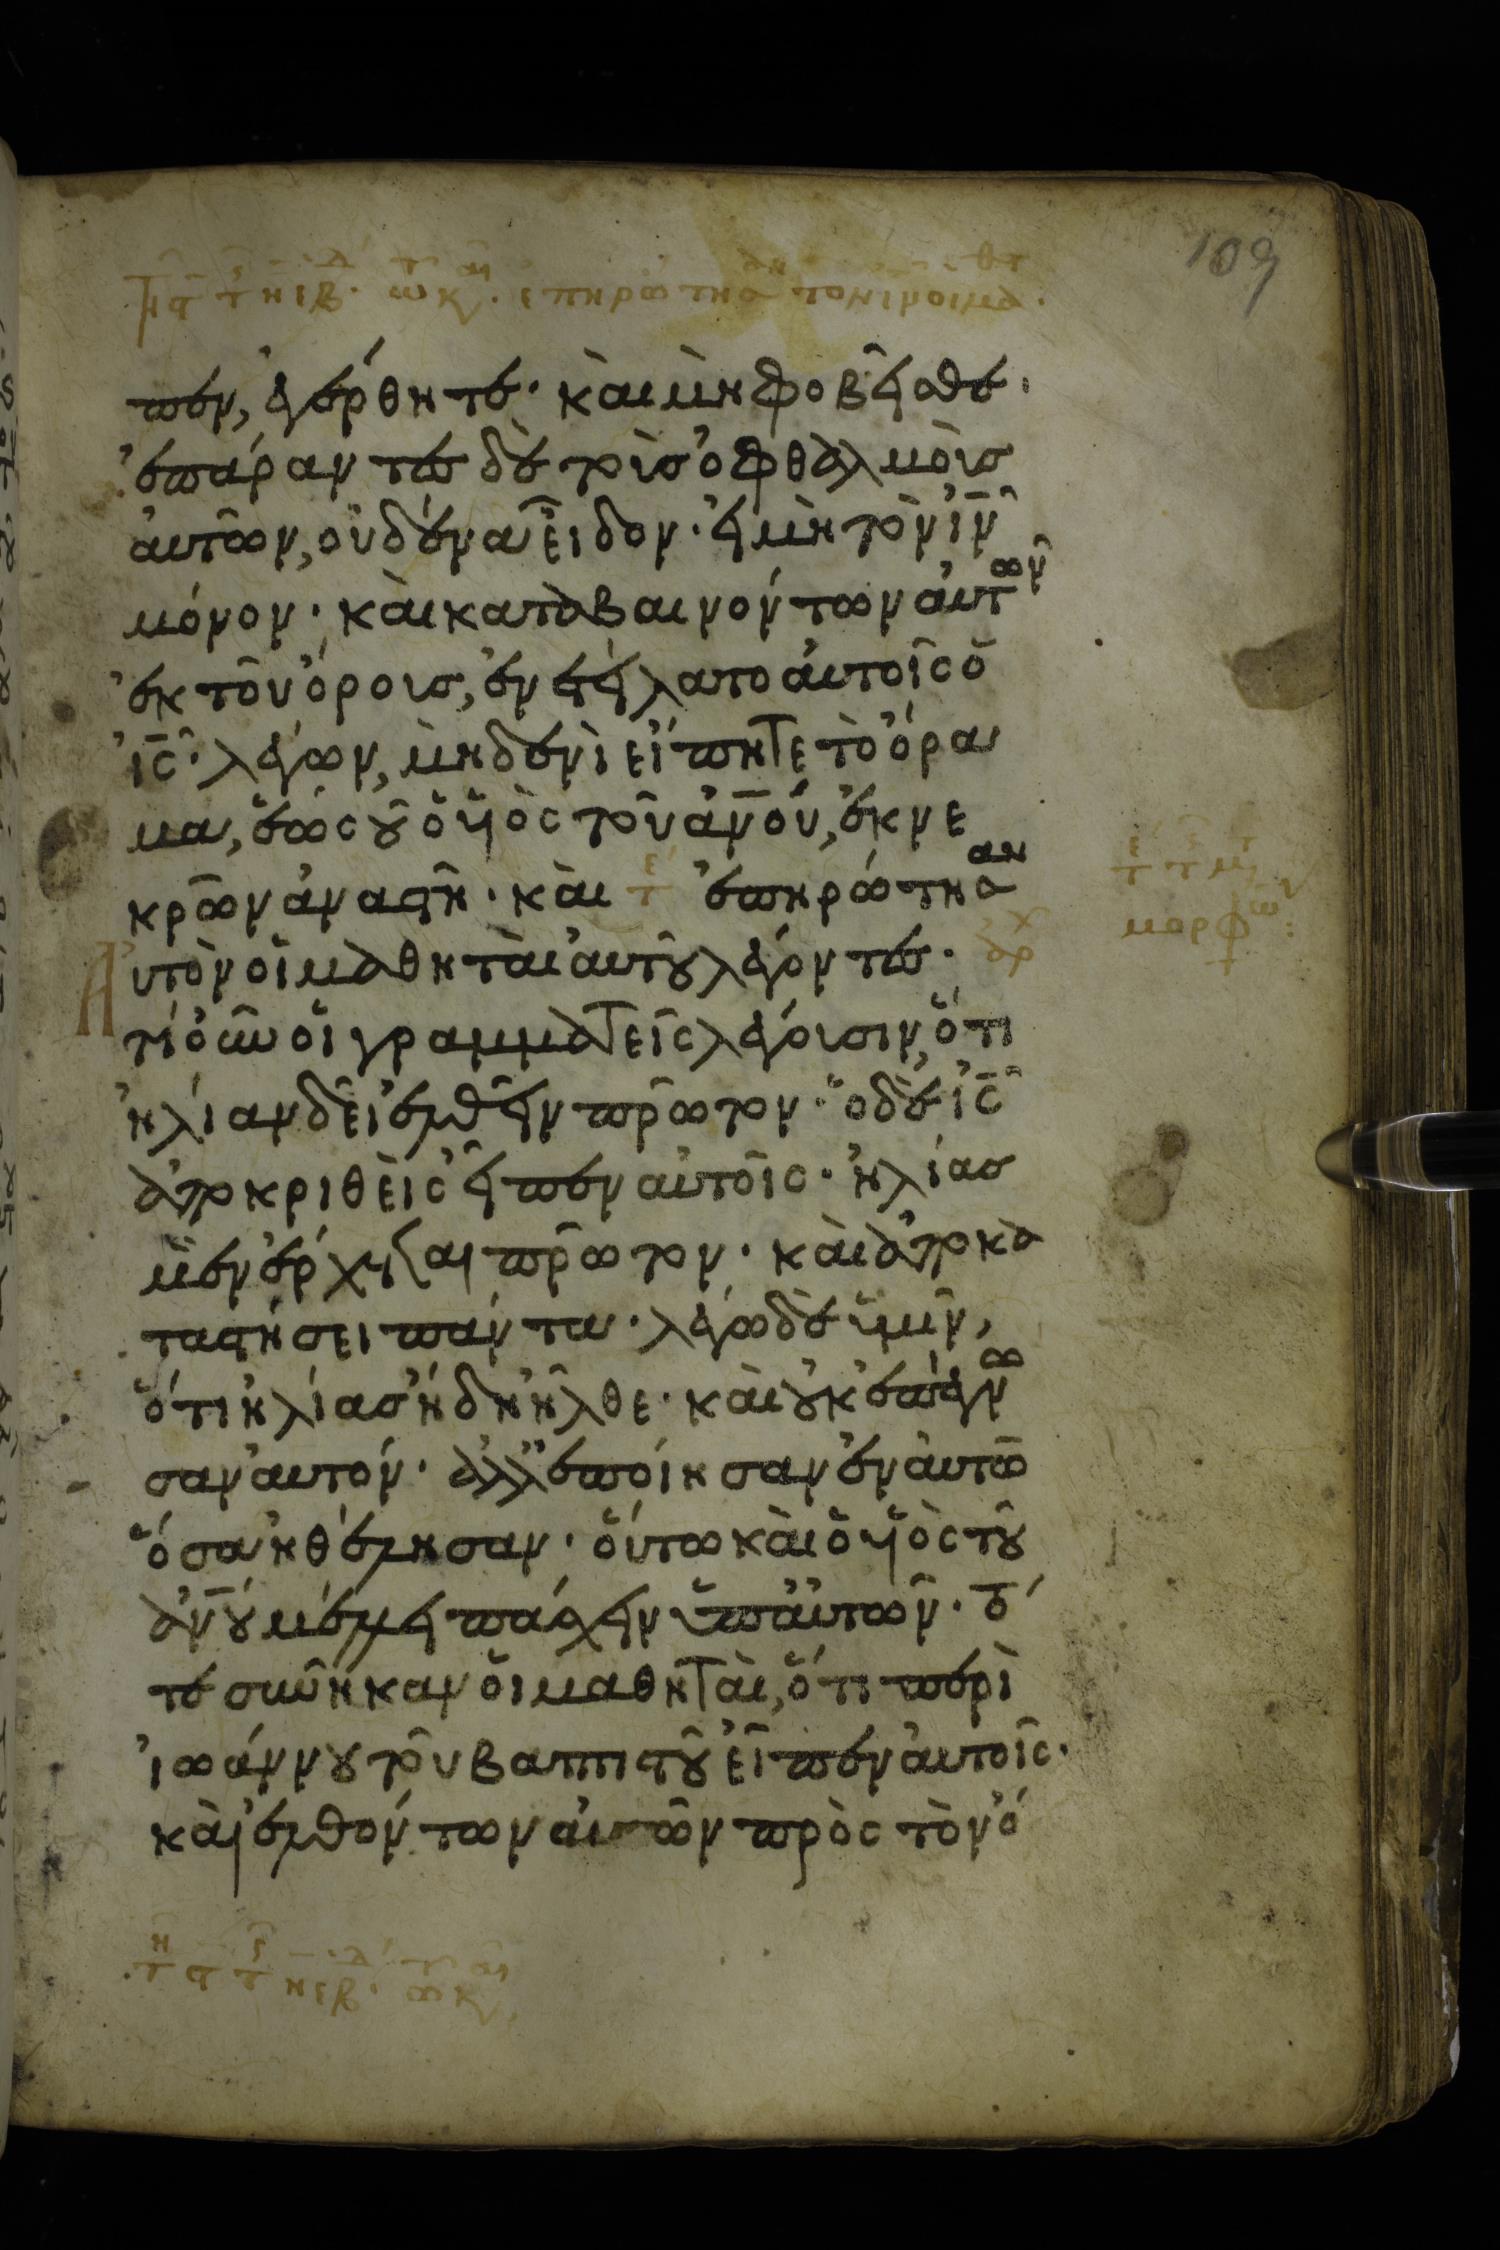 109
πεν, ἐγέρθητε· καὶ μὴ φοβεῖσθε.
ἐπάραντες δὲ τοὺς ὀφθαλμοὺς
αὐτῶν, οὐδένα εἶδον· εἰ μὴ τὸν ιν
μόνον· καὶ καταβαινόντων αὐτῶν
ἐκ τοῦ ὄρους, ἐνετείλατο αὐτοῖς ὁ
ις· λέγων, μηδενὶ εἴπητε τὸ ὅρα
μα, ἕως οὗ ὁ υἱὸς τοῦ ανου, ἐκ νε
κρῶν ἀναστῆ· καὶ ἐπηρώτησαν
αὐτὸν οἱ μαθηταὶ αὐτοῦ λέγοντες·
τί οὖν οἱ γραμματεῖς λέγουσιν, ὅτι
ἠλίαν δεῖ ἐλθεῖν πρῶτον· ὁ δὲ ις
ἀποκριθεὶς εἶπεν αὐτοῖς· ἠλίας
μὲν ἔρχεται πρῶτον· καὶ ἀποκα
ταστήσει πάντα· λέγω δὲ ὑμῖν,
ὅτι ἠλίας ἤδη ἦλθε· καὶ οὐκ ἐπέγνω
σαν αὐτόν· ἀλλ' ἐποίησαν ἐν αὐτῶ
ὅσα ἠθέλησαν· οὕτω καὶ ὁ υἱὸς τοῦ
ανου μέλλει πάσχειν ὑπ' αὐτῶν· τό
τε συνῆκαν οἱ μαθηταὶ, ὅτι περὶ
ἰωάννου τοῦ βαπτιστοῦ εἶπεν αὐτοῖς·
καὶ ἐλθόντων αὐτῶν πρὸς τὸν ὄ